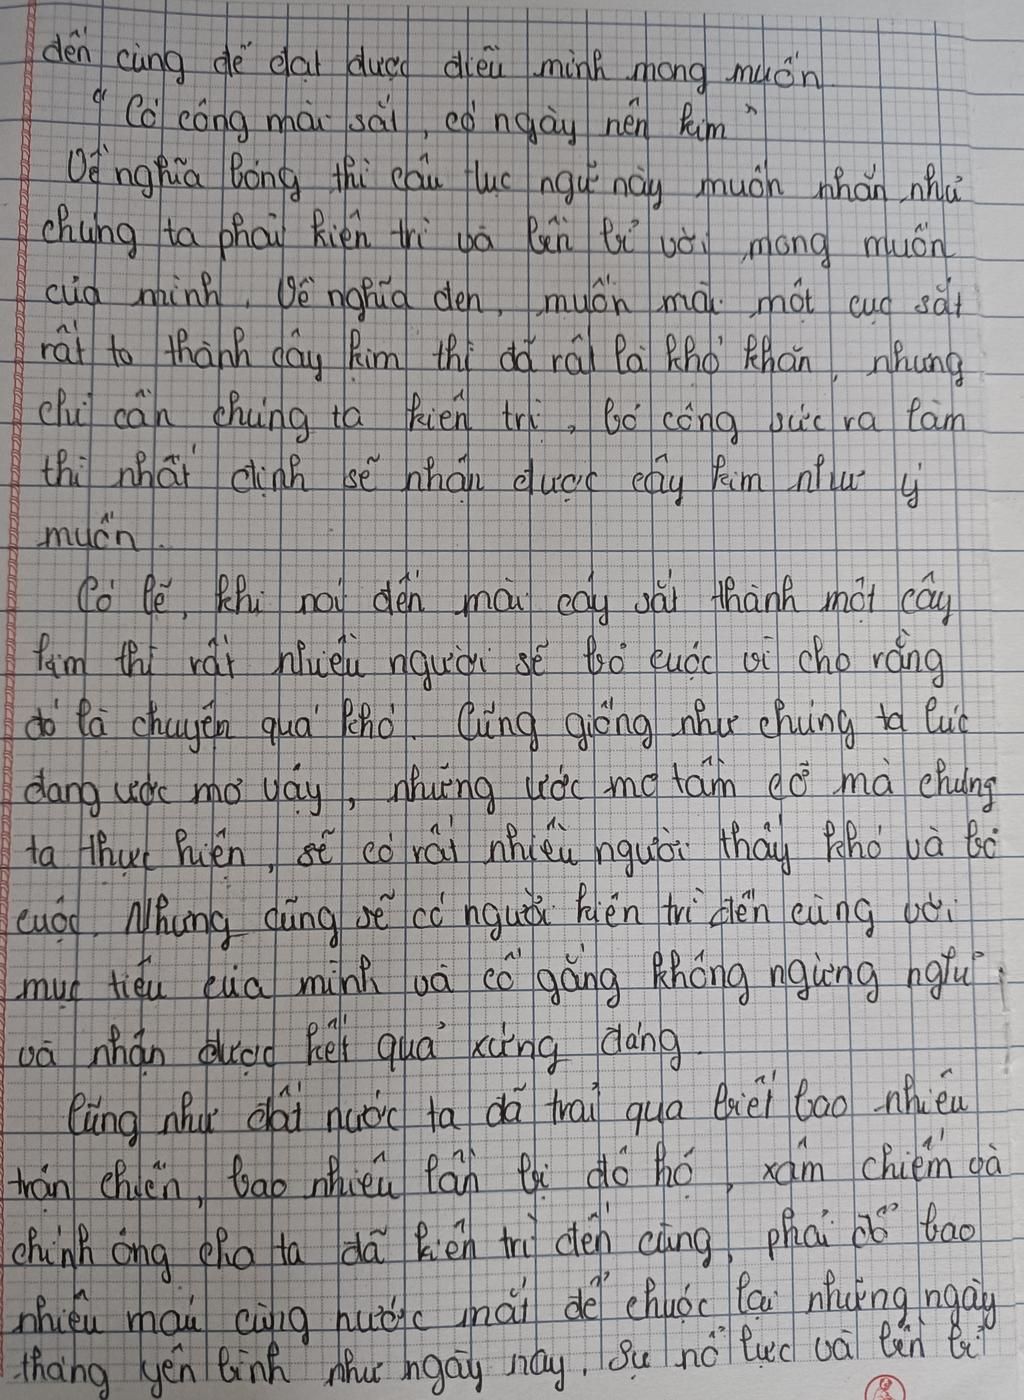 đến cùng để đạt được điều mình mong muốn
“Có công mài sắt, có ngày nên kim”
Về nghĩa bóng thì câu tục ngữ này muốn nhắn nhủ
chúng ta phải kiên trì và bền bỉ với mong muốn
của mình. Về nghĩa đen, muốn mài một cục sắt
rất to thành cây kim thì đó rất là khó khăn, nhưng
chỉ cần chúng ta kiên trì, bỏ công sức ra làm
thì nhất định sẽ nhận được cây kim như ý
muốn.
Có lẽ, khi nói đến mài cây sắt thành một cây
kim thì rất nhiều người sẽ bỏ cuộc vì cho rằng
đó là chuyện quá khó. Cũng giống như chúng ta lúc
đang ước mơ vậy, những ước mơ tầm cỡ mà chúng
ta thực hiện, sẽ có rất nhiều người thấy khó và bỏ
cuộc. Nhưng cũng sẽ có người kiên trì đến cùng với
mục tiêu của mình và cố gắng không ngừng nghỉ
và nhận được kết quả xứng đáng.
Cũng như đất nước ta đã trải qua biết bao nhiêu
trận chiến, bao nhiêu lần bị đô hộ, xâm chiếm và
chính ông cha ta đã kiên trì đến cùng, phải đổ bao
nhiêu máu cùng nước mắt để chuộc lại những ngày
tháng yên bình như ngày nay. Sự nỗ lực và bền bỉ